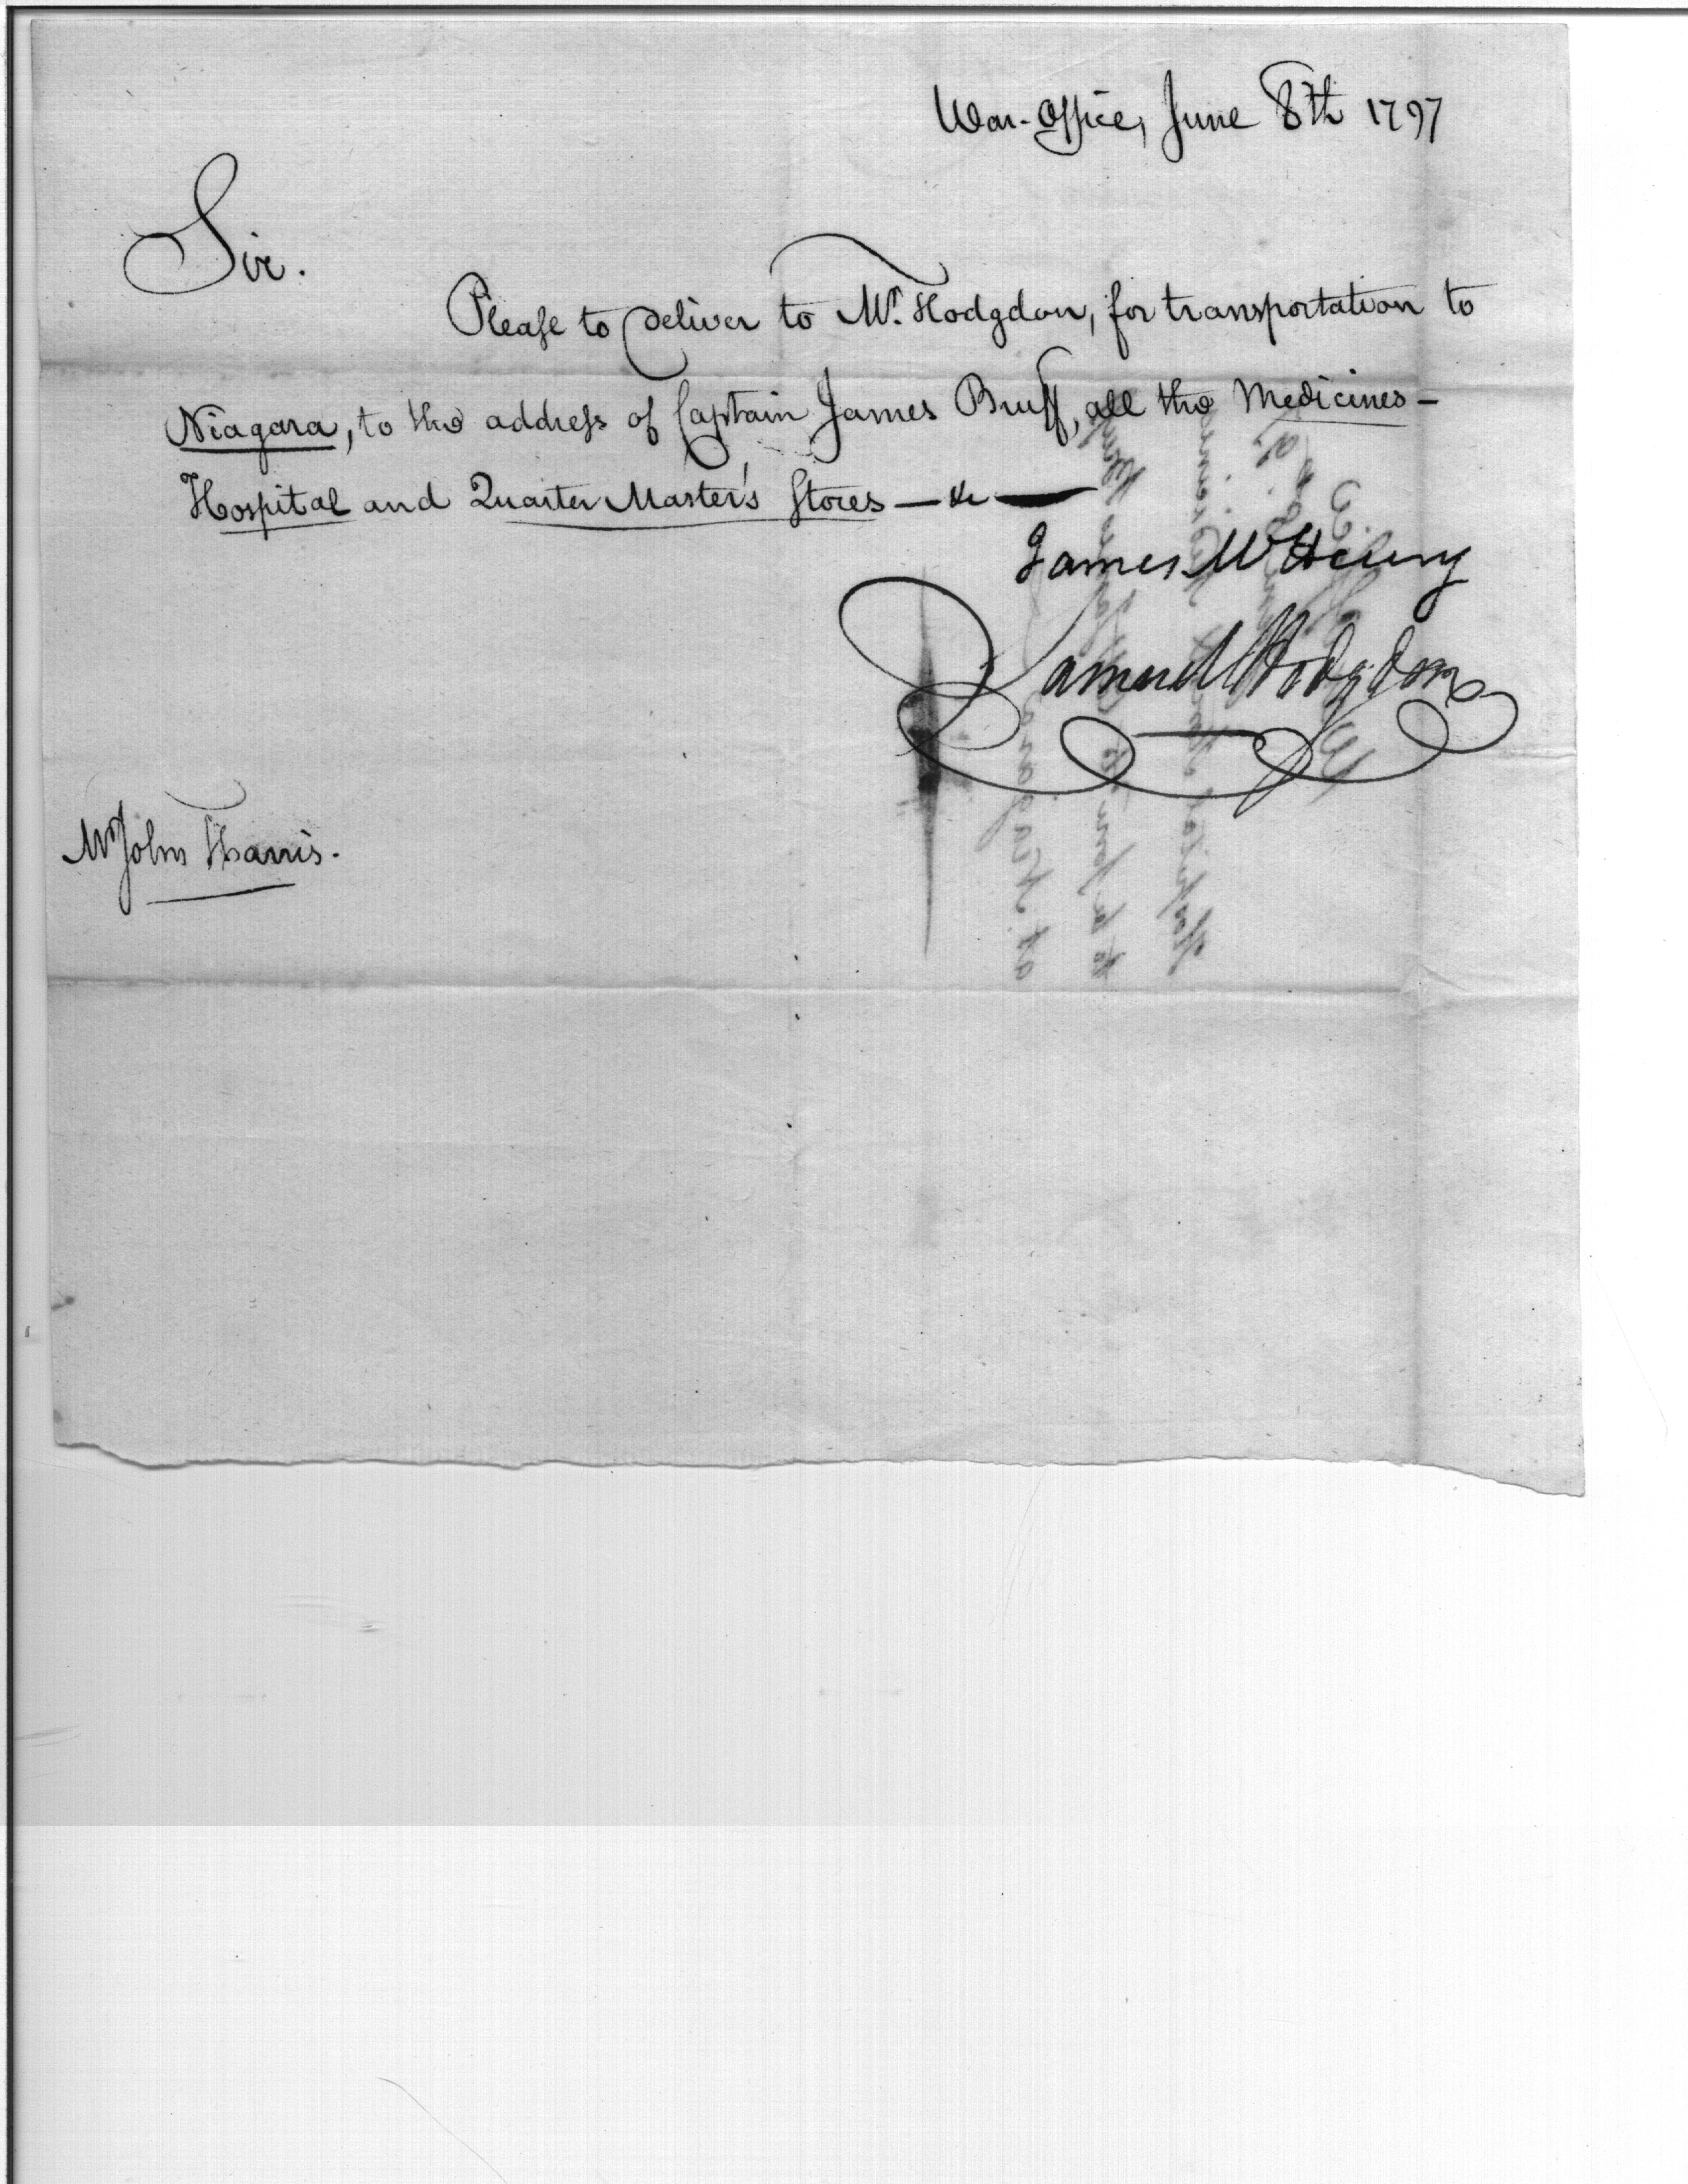 War-Office, June 8th 1797
Sir.
Please to deliver to Mr. Hodgdon, for transportation to
Niagara, to the address of Captain James Bruff, all the Medicines-
Hospital and Quarter Master's Stores — &c —
James McHenry
Samuel Hodgdon
Mr John Harris.